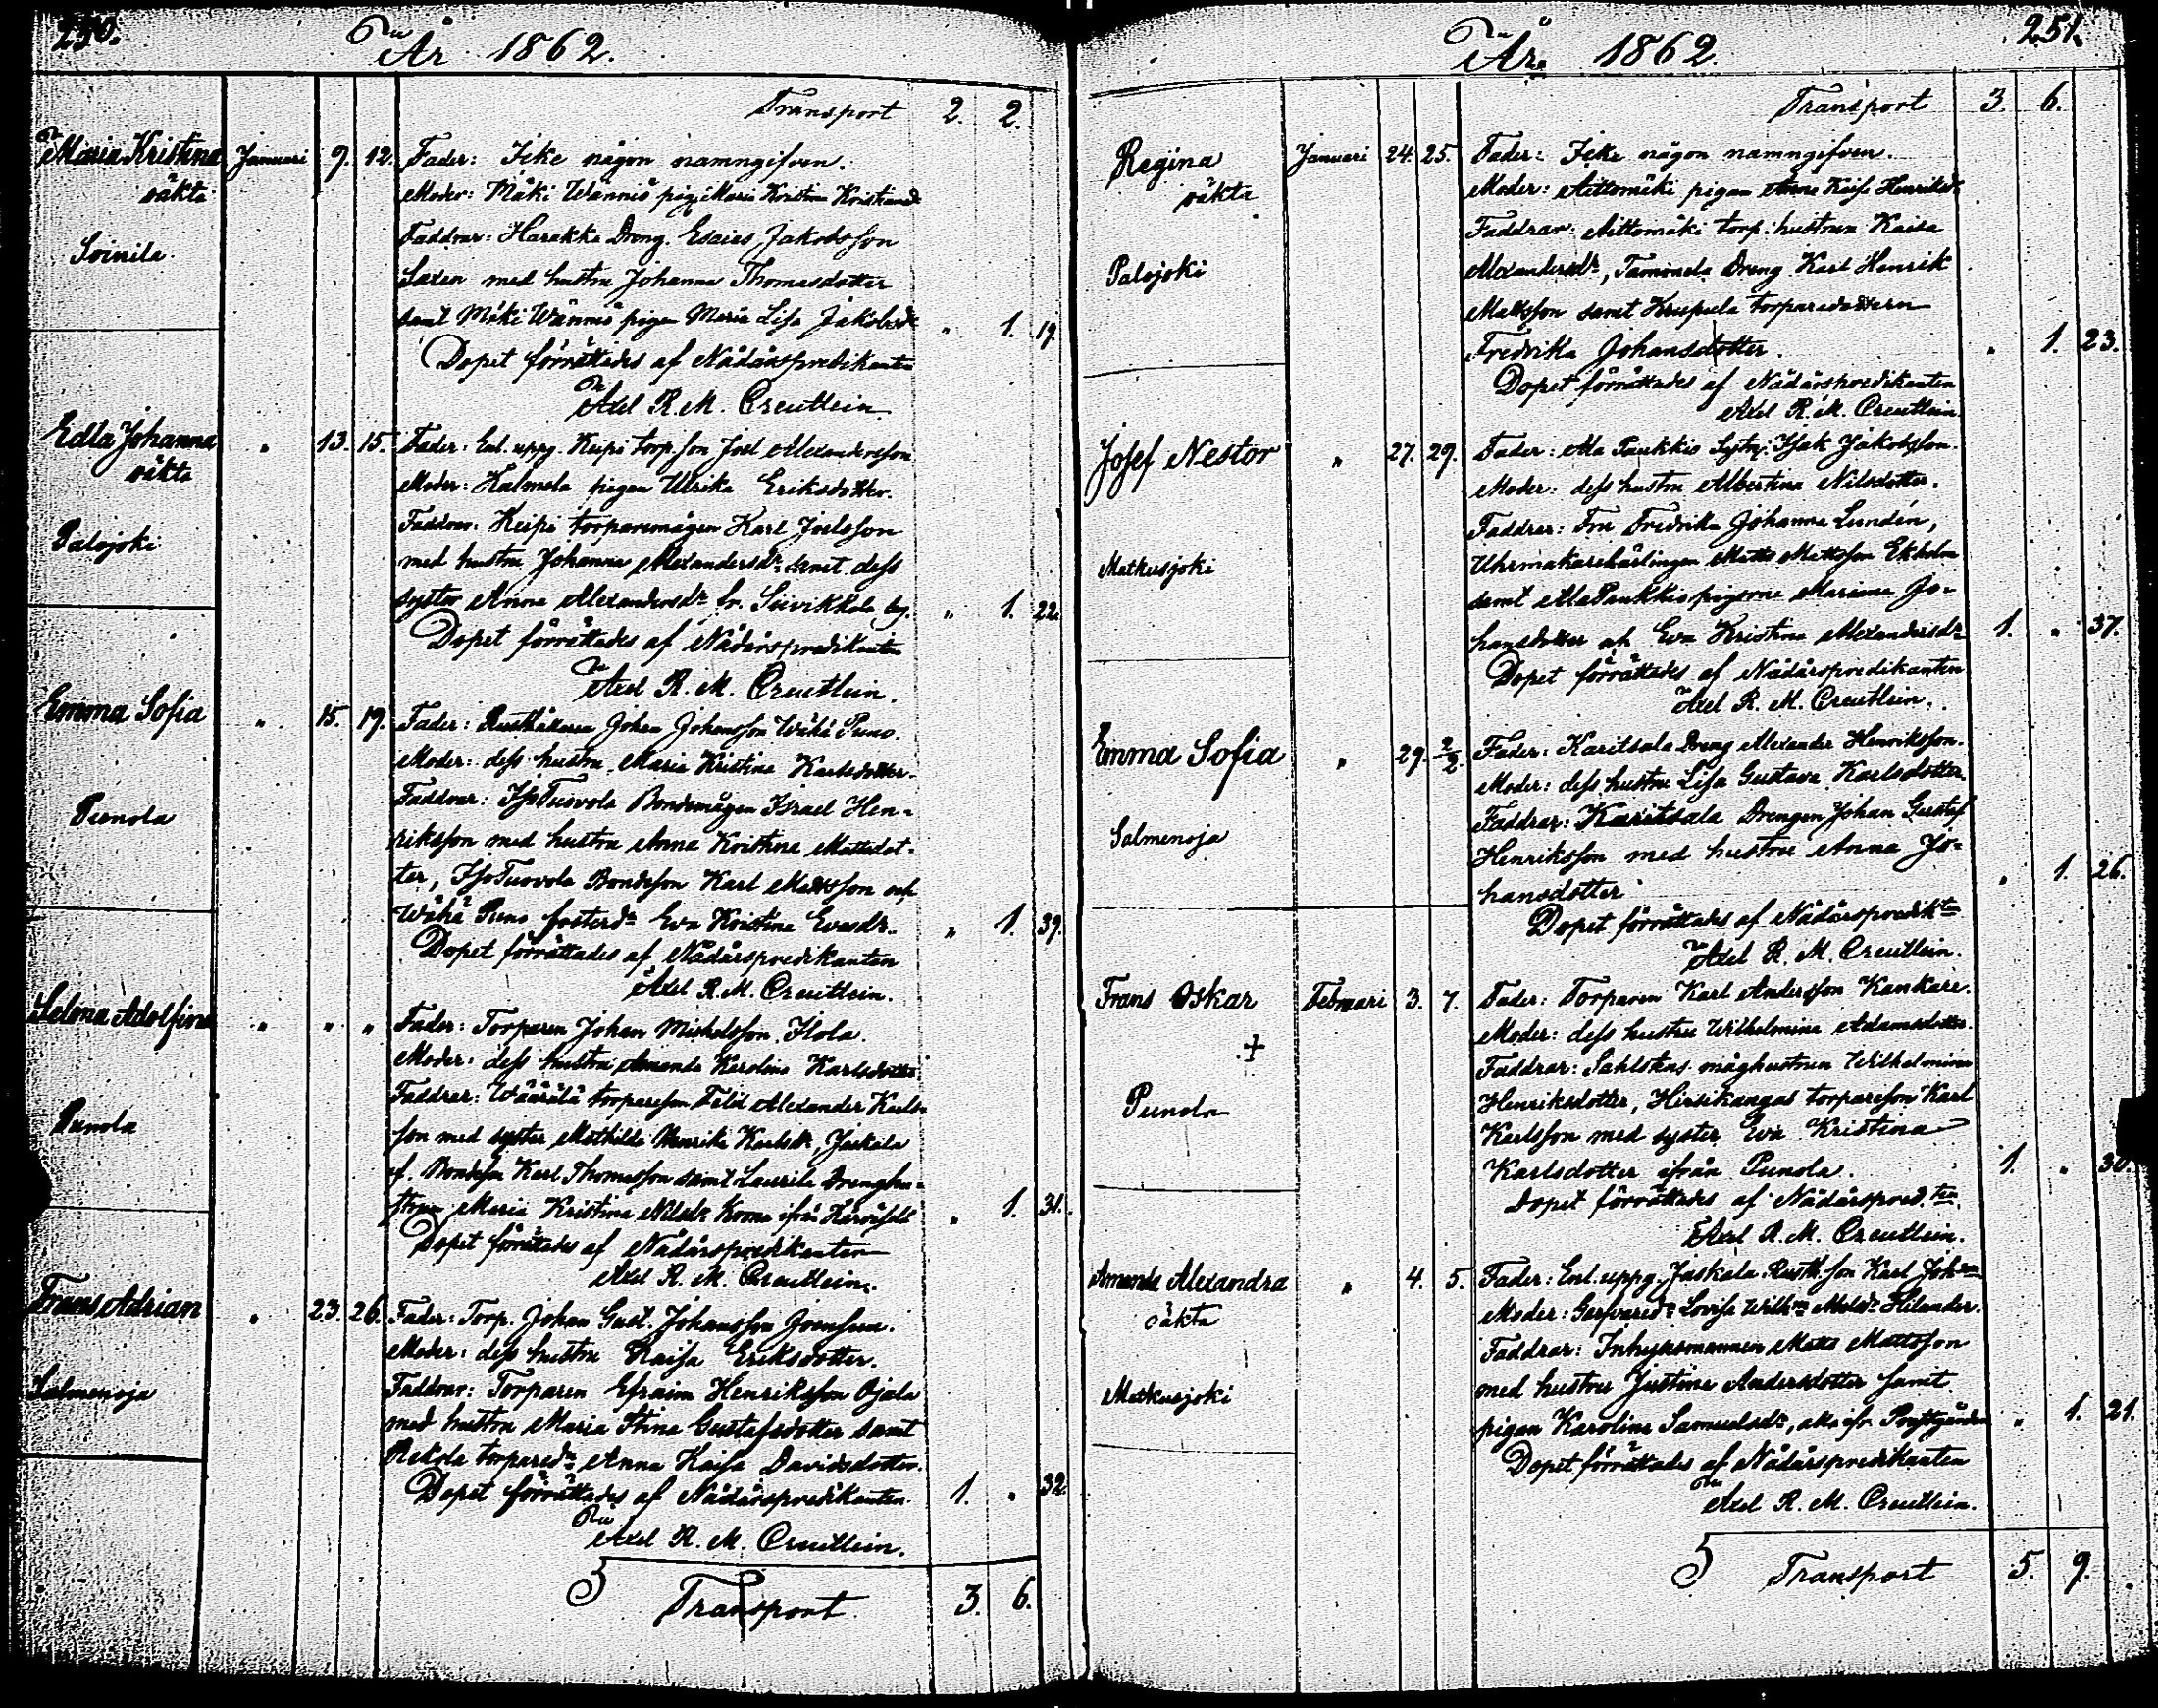 250.
År 1862.
Transport 2. 2.
Maria Kristina Januari 9. 12. Fader: Icke någon namngifven.
oäkta Moder: Mäki Wännis pig. Maria Kristina Kristiansd:
Soinila. Faddrar: Harakka Dreng. Esaias Jakobsson
Saxen med hustru Johanna Thomasdotter
samt Mäki Wännis pigan Maria Lisa Jakobsdr " 1. 19.
Dopet förrättades af Nådårspredikanten
Axel R. M. Creutlein
Edla Johanna " 13. 15. Fader: Enl. uppg. Keipi torp. son Joel Alexandersson
oäkta Moder: Halmela pigan Ulrika Eriksdotter.
Palojoki Faddrar: Keipi torparemågen Karl Joelsson
med hustru Johanna Alexandersdr samt dess
syster Anna Alexandersdr fr. Siivikkala by. " 1. 22.
Dopet förrättades af Nådårspredikanten
Axel R. M. Creutlein.
Emma Sofia " 15. 19. Fader: Rusthållaren Johan Johansson Wähä Puno.
Moder: dess hustru Maria Kristina Karlsdotter.
Punola Faddrar: IsoTuovola Bondemågen Israel Hen-
riksson med hustru Anna Kristina Mattsdot-
ter, IsoTuovola Bondeson Karl Mattsson och
Wähä Puno fosterdr Eva Kristina Evasdr. " 1. 39.
Dopet förrättades af Nådårspredikanten
Axel R. M. Creutlein.
Selma Adolfina " " " Fader: Torparen Johan Michelsson Ilola.
Moder: dess hustru Amanda Karolina Karlsdotter
Punola Faddrar: Wäärälä torpareson Felix Alexander Karls-
son med syster Mathilda Henrika Karlsdr, Jaskala
f. Bondeson Karl Thomasson samt Laurila Drenghu-
strun Maria Kristina Nilsdr ifrån " 1. 31.
Dopet förrättades af Nådårspredikanten
Axel R. M. Creutlein.
Frans Adrian " 23. 26. Fader: Torp. Johan Gust. Johansson
Moder: dess hustru Kaisa Eriksdotter.
Salmenoja Faddrar: Torparen Efraim Henriksson Ojala
med hustru Maria Stina Gustafsdotter samt
Rekola torparedr Anna Kaisa Davidsdotter.
Dopet förrättades af Nådårspredikanten. 1. " 32.
Axel R. M. Creutlein.
5 Transport 3. 6.
251.
År 1862.
Transport 3. 6.
Regina Januari 24. 25. Fader: Icke någon namngifven.
oäkta Moder: Aittomäki pigan Anna Kaisa Henriksdr
Faddrar: Aittomäki torp. hustrun Kaisa
Palojoki Alexandersdr, Dreng Karl Henrik
Mattsson samt Krupula torparedottern
Fredrika Johansdotter. " 1. 23.
Dopet förrättades af Nådårspredikanten
Axel R. M. Creutlein.
Josef Nestor " 27. 29. Fader: Ala Paukkio Isak Jakobsson.
Moder: dess hustru Albertina Nilsdotter.
Faddrar: Fru Fredrika Johanna Lundén,
Matkusjoki Uhrmakarelärlingen Matts Mattsson Ekholm
samt AlaPaukkio pigorna Mariana Jo-
hansdotter och Eva Kristina Alexandersdr 1. " 37.
Dopet förrättades af Nådårspredikanten
Axel R. M. Creutlein.
Emma Sofia " 29. 2/2. Fader: Karitsala Dreng Alexander Henriksson.
Moder: dess hustru Lisa Gustava Karlsdotter.
Faddrar: Karitsala Drengen Johan Gustaf
Salmenoja Henriksson med hustru Anna Jo-
hansdotter " 1. 26.
Dopet förrättades af Nådårspredikten
Axel R. M. Creutlein.
Frans Oskar Februari 3. 7. Fader: Torparen Karl Andersson Kankare.
+ Moder: dess hustru Wilhelmina Adamsdotter.
Faddrar: Sahlstens måghustrun Wilhelmina
Punola Henriksdotter, Hirsikangas torpareson Karl
Karlsson med syster Eva Kristina
Karlsdotter ifrån Punola. 1. " 30.
Dopet förrättades af Nådårspred.ten
Axel R. M. Creutlein.
Amanda Alexandra " 4. 5. Fader: Enl. uppg. Jaskala Rusth. son Karl Johan
oäkta Moder: Garfvaredr Lovisa Hilander.
Faddrar: Inhysesmannen Matts Mattsson
Matkusjoki med hustru Justina Andersdotter samt
pigan Karolina Samuelsdr, alla ifr. Prostgården " 1. 21.
Dopet förrättades af Nådårspredikanten
Axel R. M. Creutlein.
5 Transport 5. 9.